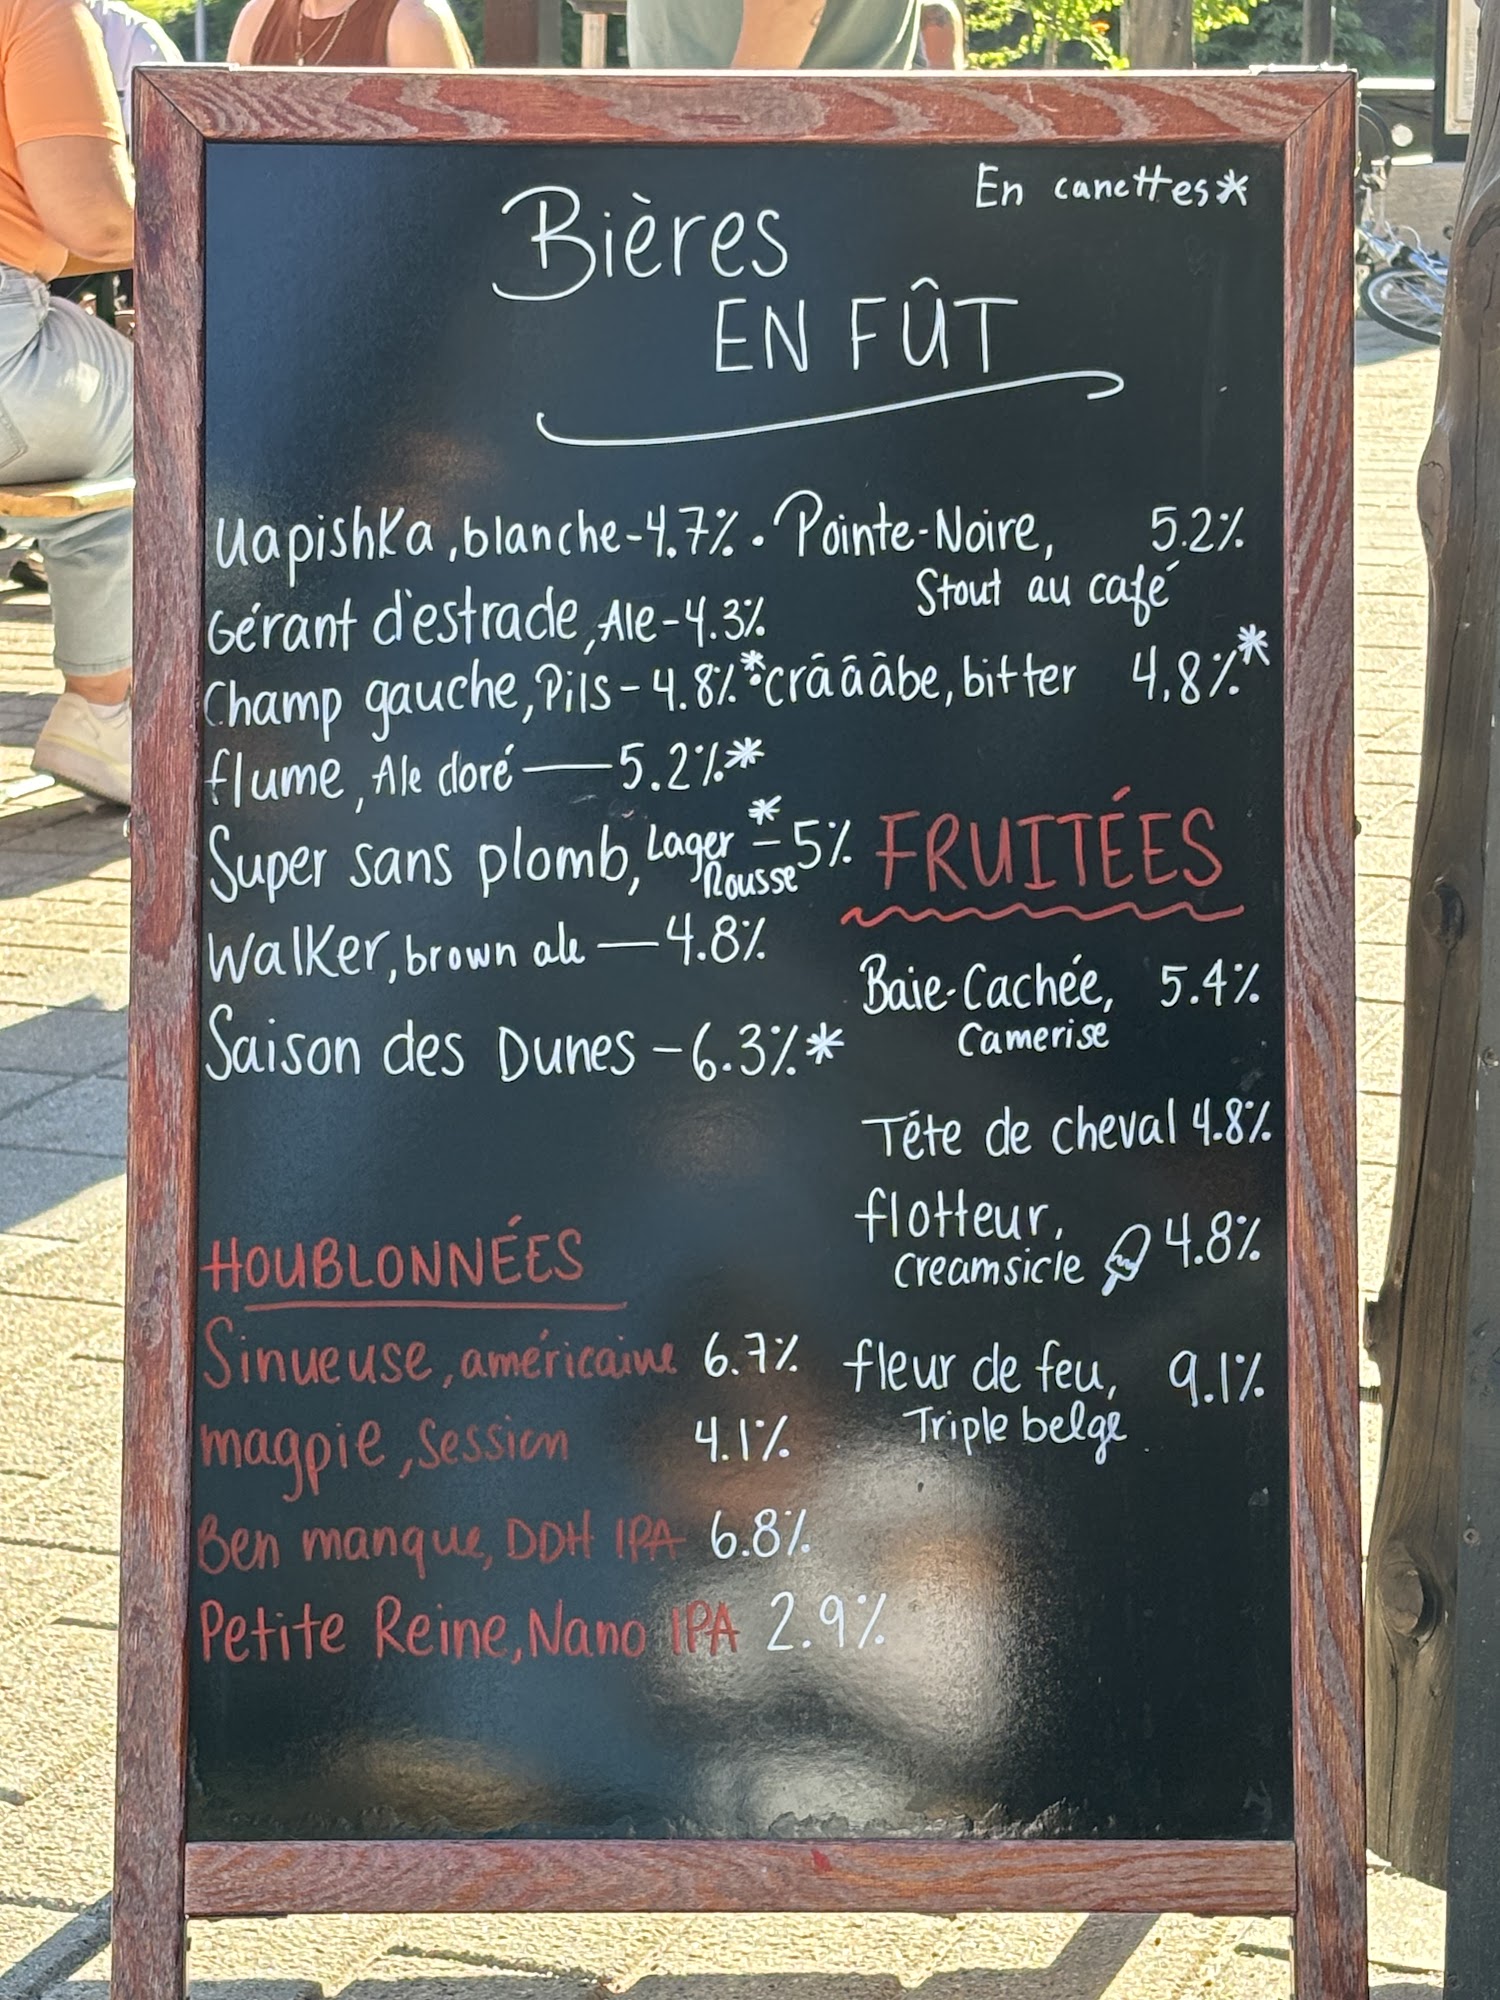 En canettes*
Bières
EN FÛT
Uapishka, blanche - 4.7%
Gérant d'estrade, Ale - 4.3%
Champ gauche, Pils - 4.8%*
flume, Ale doré — 5.2%*
Super sans plomb, Lager Rousse* - 5%
Walker, brown ale — 4.8%
Saison des Dunes - 6.3%*
• Pointe-Noire, 5.2%
Stout au café
• crââââbe, bitter 4.8%*
FRUITÉES
Baie-Cachée, 5.4%
Camerise
Téte de cheval 4.8%
flotteur, 4.8%
Creamsicle
fleur de feu, 9.1%
Triple belge
HOUBLONNÉES
Sinueuse, américaine 6.7%
magpie, Session 4.1%
Ben manque, DDH IPA 6.8%
Petite Reine, Nano IPA 2.9%